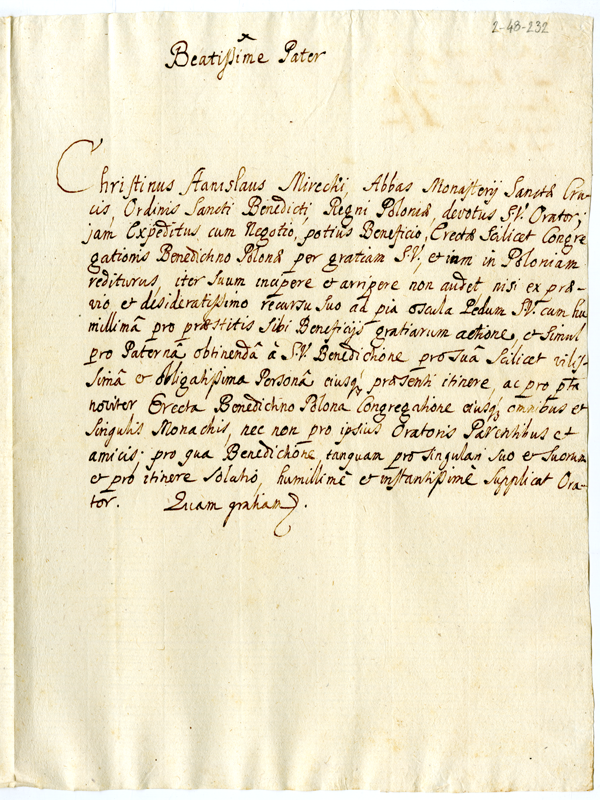 2-48-232
Beatissime Pater
Christinus Stanislaus Mirecki, Abbas Monasterij Sanctæ Cru-
cis, Ordinis Sancti Benedicti, Regni Poloniæ, devotus S.V. Orator,
jam Expeditus cum Negotio, potius Beneficio, Erectæ Scilicet Congre
gationis Benedictino Polonæ per gratiam S.V., et iam in Poloniam
rediturus, iter suum incipere et arripere non audet nisi ex præ-
vio et desideratissimo recursu suo ad pia oscula Pedum S.V. cum hu
millimâ pro præstitis sibi Beneficijs gratiarum actione, et simul
pro Paternâ obtinendâ à S.V. Benedictione pro suâ Scilicet vilis-
simâ et obligatissima Personâ eiusq; præsenti itinere, ac pro pta
noviter Erecta Benedictino Polona Congregatione eiusq; omnibus et
singulis Monachis, nec non pro ipsius Oratoris Parentibus et
amicis; pro qua Benedictione tanquam pro singulari suo et suorum
et pro itinere solatio, humillimè et instantissimè supplicat Ora-
tor. Quam gratiam.